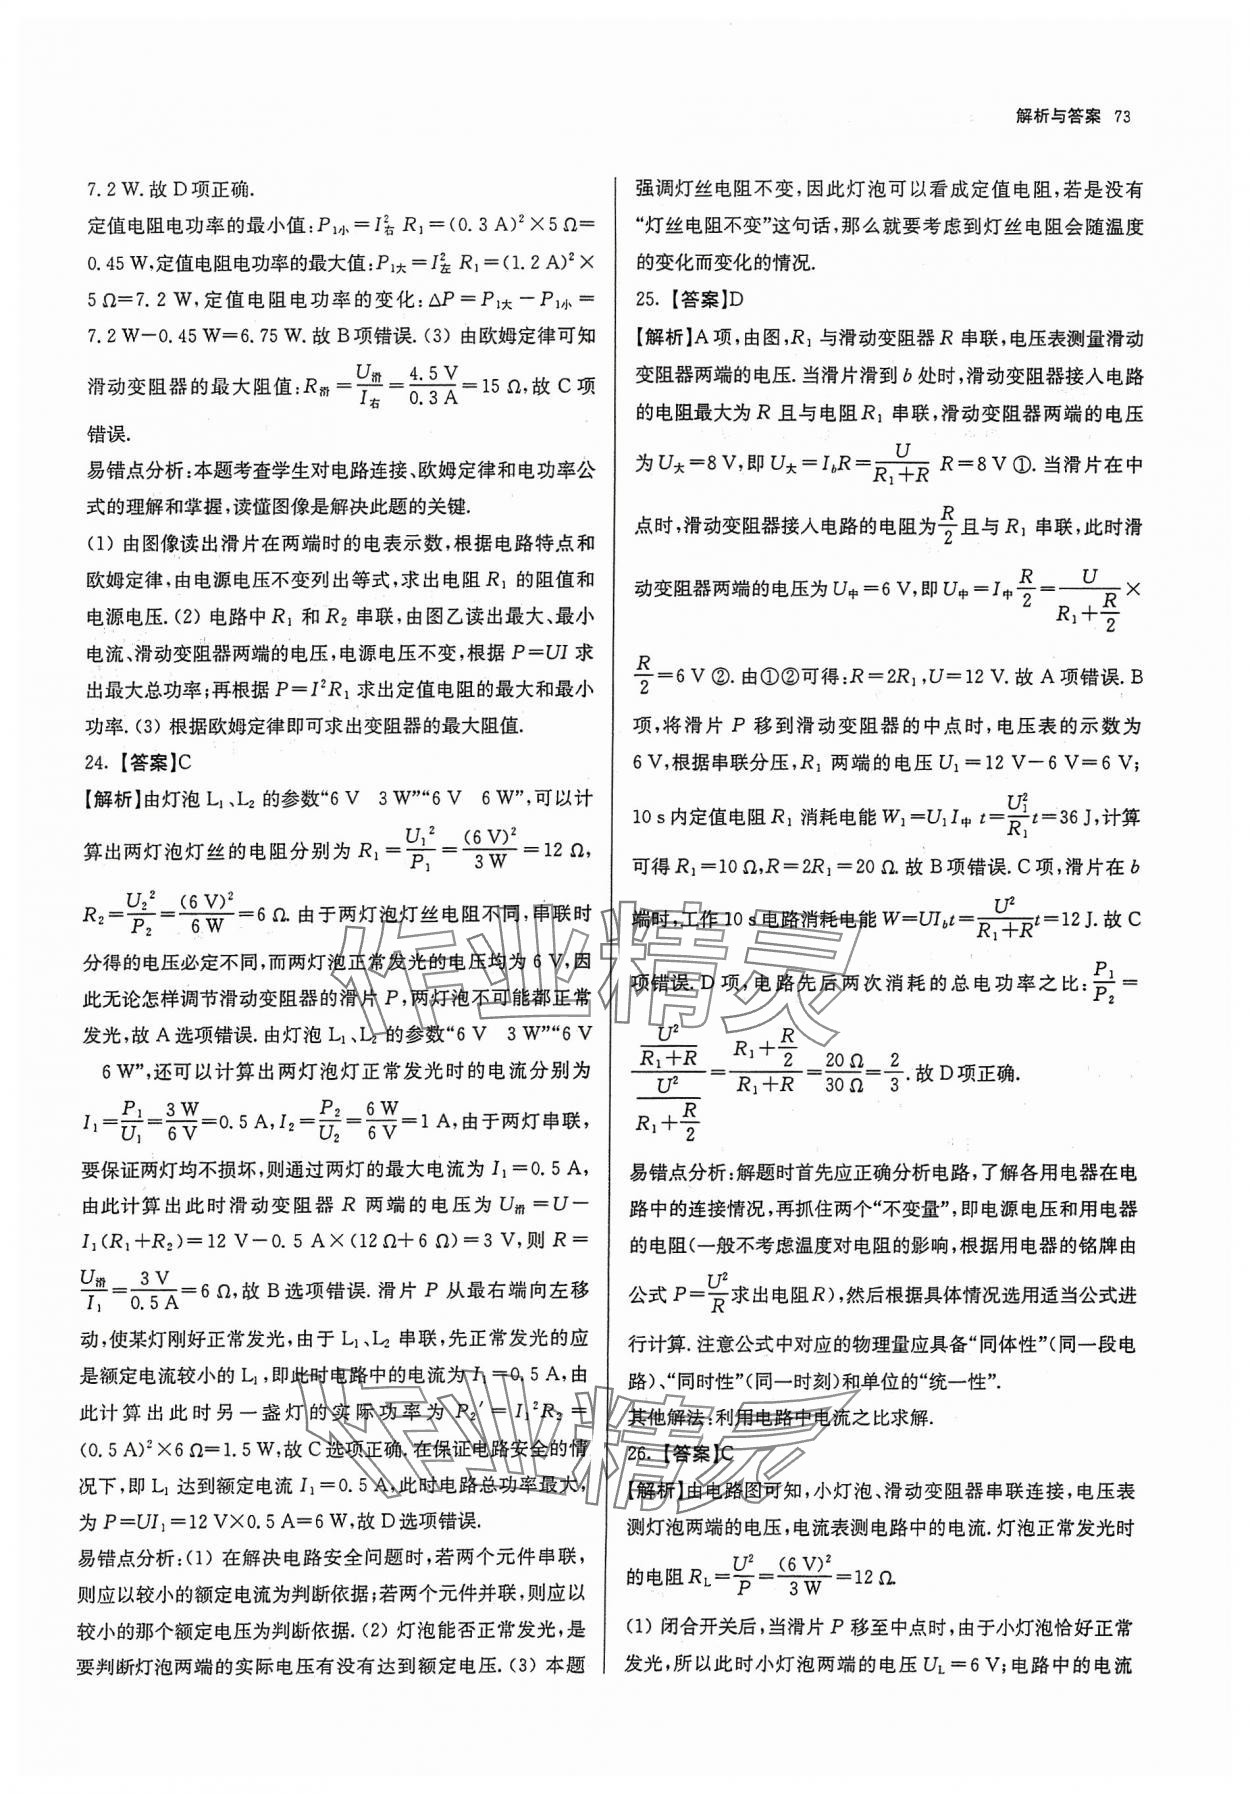 解析与答案 73
7.2 W.故 D 项正确.
定值电阻电功率的最小值:P₁小=I右² R₁=(0.3 A)²×5 Ω=
0.45 W,定值电阻电功率的最大值:P₁大=I左² R₁=(1.2 A)²×
5 Ω=7.2 W,定值电阻电功率的变化:ΔP=P₁大-P₁小=
7.2 W-0.45 W=6.75 W.故 B 项错误.(3) 由欧姆定律可知
滑动变阻器的最大阻值:R滑=U滑/I右=4.5 V/0.3 A=15 Ω,故 C 项
错误.
易错点分析:本题考查学生对电路连接、欧姆定律和电功率公
式的理解和掌握,读懂图像是解决此题的关键.
(1) 由图像读出滑片在两端时的电表示数,根据电路特点和
欧姆定律,由电源电压不变列出等式,求出电阻 R₁ 的阻值和
电源电压.(2) 电路中 R₁ 和 R₂ 串联,由图乙读出最大、最小
电流、滑动变阻器两端的电压,电源电压不变,根据 P=UI 求
出最大总功率;再根据 P=I²R₁ 求出定值电阻的最大和最小
功率.(3) 根据欧姆定律即可求出变阻器的最大阻值.
24.【答案】C
【解析】由灯泡 L₁、L₂ 的参数“6 V 3 W”“6 V 6 W”,可以计
算出两灯泡灯丝的电阻分别为 R₁=U₁²/P₁=(6 V)²/3 W=12 Ω,
R₂=U₂²/P₂=(6 V)²/6 W=6 Ω.由于两灯泡灯丝电阻不同,串联时
分得的电压必定不同,而两灯泡正常发光的电压均为 6 V,因
此无论怎样调节滑动变阻器的滑片 P,两灯泡不可能都正常
发光,故 A 选项错误.由灯泡 L₁、L₂ 的参数“6 V 3 W”“6 V
6 W”,还可以计算出两灯泡灯正常发光时的电流分别为
I₁=P₁/U₁=3 W/6 V=0.5 A,I₂=P₂/U₂=6 W/6 V=1 A,由于两灯串联,
要保证两灯均不损坏,则通过两灯的最大电流为 I₁=0.5 A,
由此计算出此时滑动变阻器 R 两端的电压为 U滑=U-
I₁(R₁+R₂)=12 V-0.5 A×(12 Ω+6 Ω)=3 V,则 R=
U滑/I₁=3 V/0.5 A=6 Ω,故 B 选项错误.滑片 P 从最右端向左移
动,使某灯刚好正常发光,由于 L₁、L₂ 串联,先正常发光的应
是额定电流较小的 L₁,即此时电路中的电流为 I₁=0.5 A,由
此计算出此时另一盏灯的实际功率为 P₂′=I₁²R₂=
(0.5 A)²×6 Ω=1.5 W,故 C 选项正确.在保证电路安全的情
况下,即 L₁ 达到额定电流 I₁=0.5 A,此时电路总功率最大,
为 P=UI₁=12 V×0.5 A=6 W,故 D 选项错误.
易错点分析:(1) 在解决电路安全问题时,若两个元件串联,
则应以较小的额定电流为判断依据;若两个元件并联,则应以
较小的那个额定电压为判断依据.(2) 灯泡能否正常发光,是
要判断灯泡两端的实际电压有没有达到额定电压.(3) 本题
强调灯丝电阻不变,因此灯泡可以看成定值电阻,若是没有
“灯丝电阻不变”这句话,那么就要考虑到灯丝电阻会随温度
的变化而变化的情况.
25.【答案】D
【解析】A 项,由图,R₁ 与滑动变阻器 R 串联,电压表测量滑动
变阻器两端的电压.当滑片滑到 b 处时,滑动变阻器接入电路
的电阻最大为 R 且与电阻 R₁ 串联,滑动变阻器两端的电压
为 U大=8 V,即 U大=I_bR=U/(R₁+R) R=8 V ①.当滑片在中
点时,滑动变阻器接入电路的电阻为R/2且与 R₁ 串联,此时滑
动变阻器两端的电压为 U中=6 V,即 U中=I中 R/2=U/(R₁+R/2)×
R/2=6 V ②.由①②可得:R=2R₁,U=12 V.故 A 项错误.B
项,将滑片 P 移到滑动变阻器的中点时,电压表的示数为
6 V,根据串联分压,R₁ 两端的电压 U₁=12 V-6 V=6 V;
10 s 内定值电阻 R₁ 消耗电能 W₁=U₁I中 t=U₁²/R₁ t=36 J,计算
可得 R₁=10 Ω,R=2R₁=20 Ω.故 B 项错误.C 项,滑片在 b
端时,工作 10 s 电路消耗电能 W=UI_bt=U²/(R₁+R) t=12 J.故 C
项错误.D 项,电路先后两次消耗的总电功率之比:P₁/P₂=
(U²/(R₁+R))/(U²/(R₁+R/2))=(R₁+R/2)/(R₁+R)=20 Ω/30 Ω=2/3.故 D 项正确.
易错点分析:解题时首先应正确分析电路,了解各用电器在电
路中的连接情况,再抓住两个“不变量”,即电源电压和用电器
的电阻(一般不考虑温度对电阻的影响,根据用电器的铭牌由
公式 P=U²/R求出电阻 R),然后根据具体情况选用适当公式进
行计算.注意公式中对应的物理量应具备“同体性”(同一段电
路)、“同时性”(同一时刻)和单位的“统一性”.
其他解法:利用电路中电流之比求解.
26.【答案】C
【解析】由电路图可知,小灯泡、滑动变阻器串联连接,电压表
测灯泡两端的电压,电流表测电路中的电流.灯泡正常发光时
的电阻 R_L=U²/P=(6 V)²/3 W=12 Ω.
(1) 闭合开关后,当滑片 P 移至中点时,由于小灯泡恰好正常
发光,所以此时小灯泡两端的电压 U_L=6 V;电路中的电流
作业精灵
作业精灵